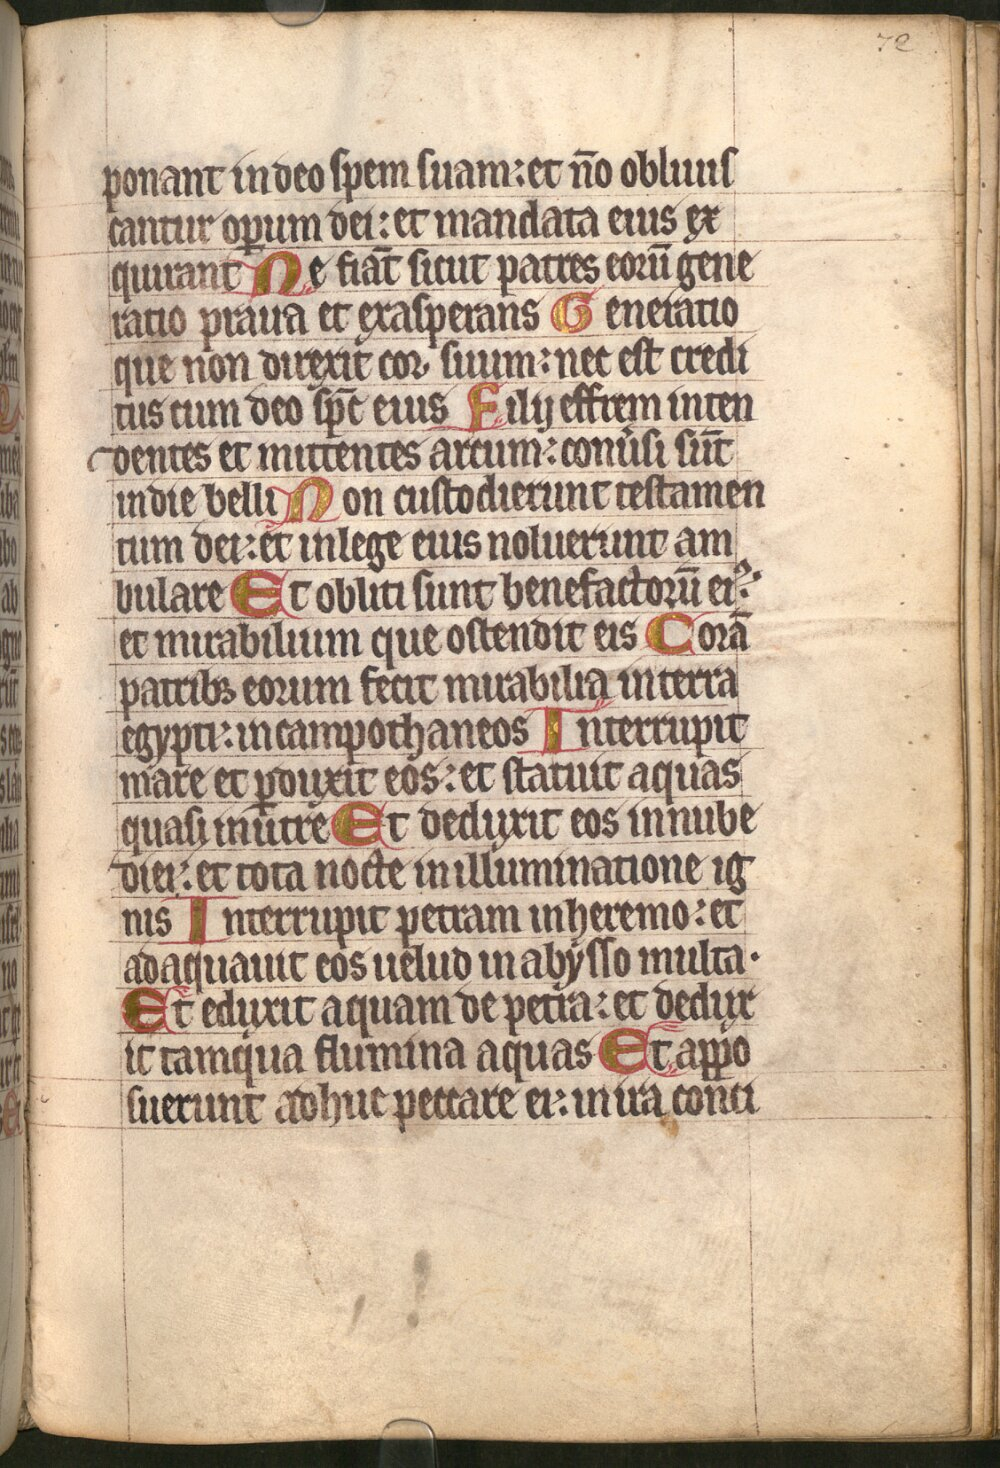 72
ponant in deo spem suam: et nō obliuis
cantur oꝑum dei: et mandata eius ex
quirant Ne fiāt sicut patres eorū gene
ratio praua et exasperans Generatio
que non direxit cor suum: nec est credi
tus cum deo sp̄c eius Filij effrem inten
dentes et mittentes arcum: conūsi sūt
in die belli Non custodierunt testamen
tum dei: et in lege eius noluerunt am
bulare Et obliti sunt benefactorū eiꝰ:
et mirabilium que ostendit eis Corā
patribꝫ eorum fecit mirabilia in terra
egypti: in campo thaneos Interrupit
mare et ꝑduxit eos: et statuit aquas
quasi in ūtre Et deduxit eos in nube
diei: et tota nocte in illuminatione ig
nis Interrupit petram in heremo: et
adaquauit eos uelud in abysso multa.
Et eduxit aquam de petra: et dedux
it tamqua flumina aquas Et appo
suerunt adhuc peccare ei: in ira conci